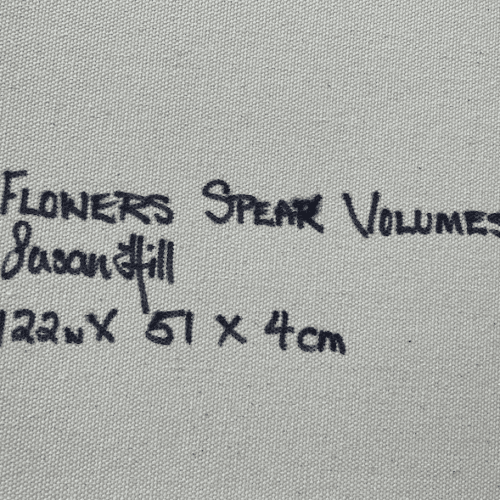 FLOWERS SPEAK VOLUMES
Susan Hill
122w X 51 X 4cm